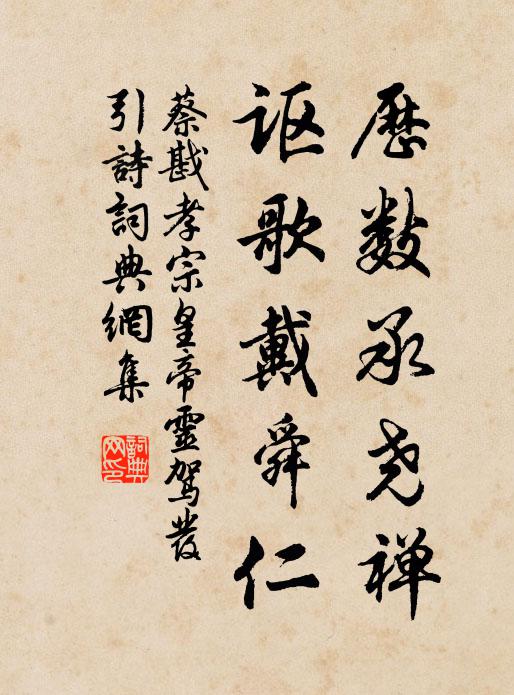 歷數承尧禅
讴歌戴舜仁
蔡戡孝宗皇帝靈駕發
引詩詞典網集
詞典
网印